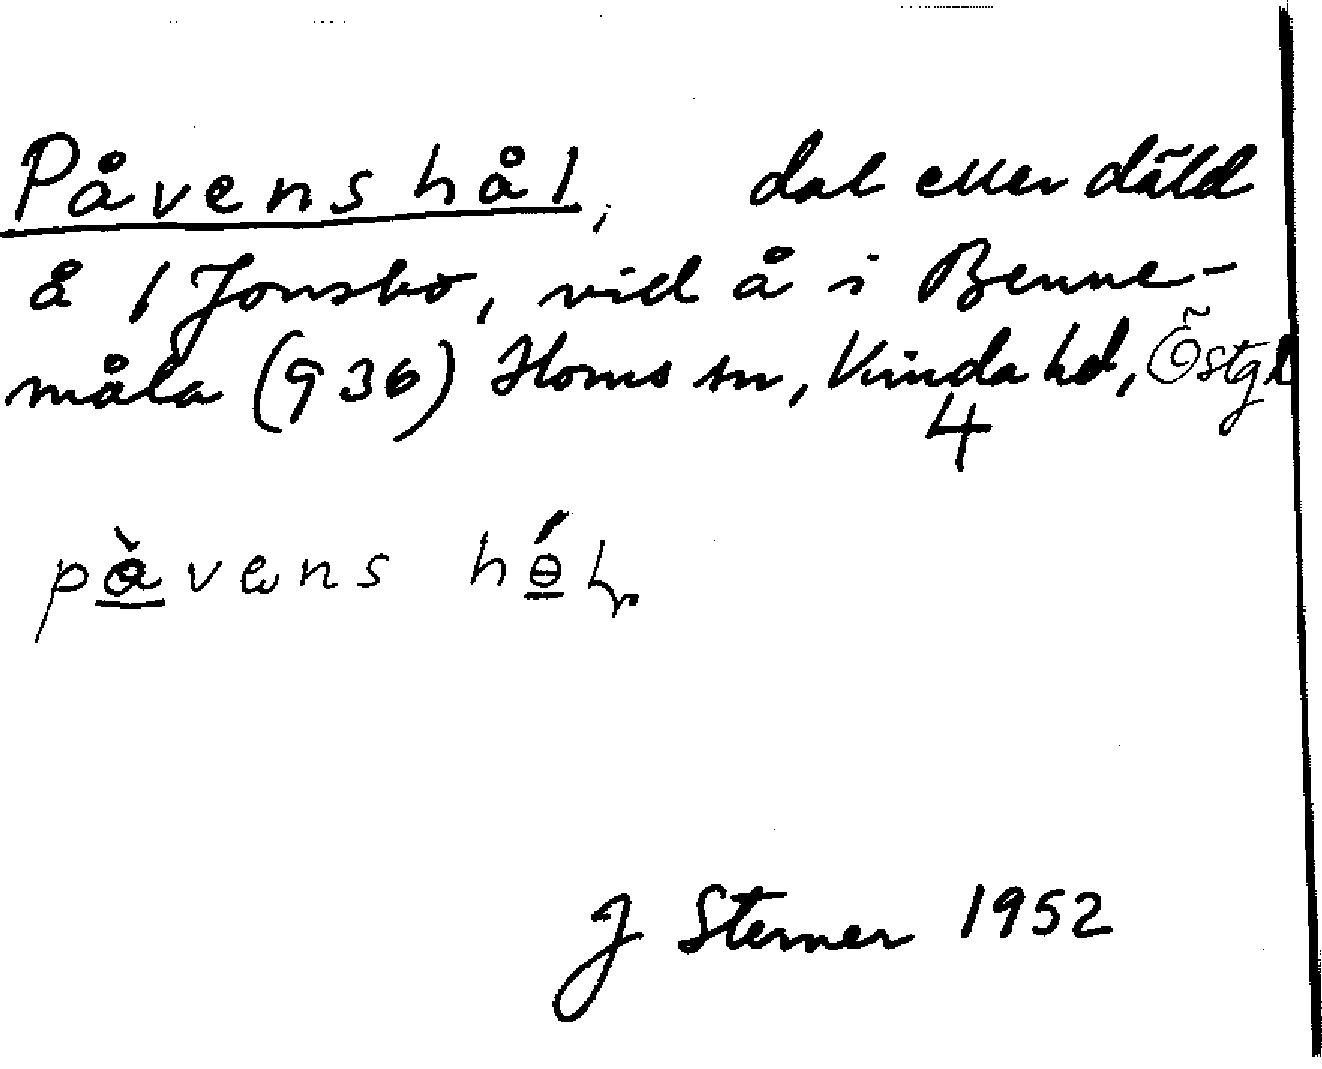 Påvens hål, dal eller däld
å 1 Jonsbo, vid å i Benne-
måla (936) Horns sn, Kinda hd, Östgl
4
pàvens hól
J Sterner 1952